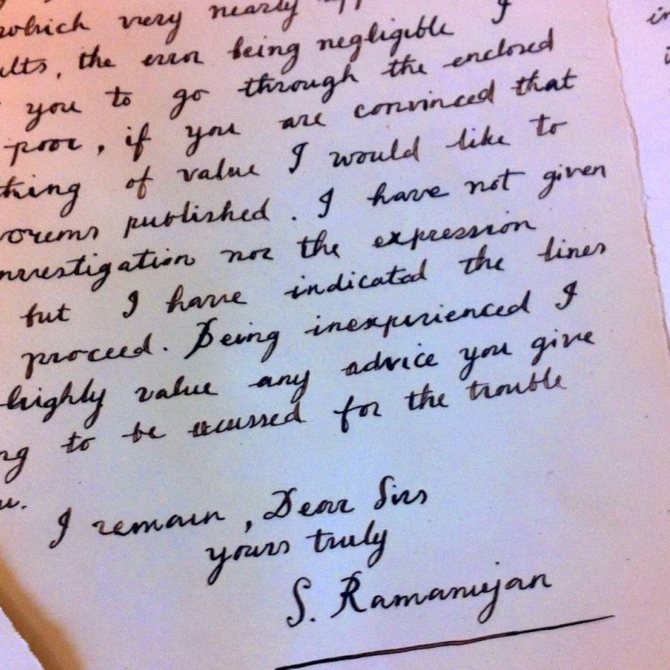 which very nearly
the error being negligible I
you to go through the enclosed
poor, if you are convinced that
thing of value I would like to
orems published. I have not given
nvestigation nor the expression
but I have indicated the lines
proceed. Being inexperienced I
highly value any advice you give
ng to be excused for the trouble
u.
I remain, Dear Sirs
yours truly
S. Ramanujan